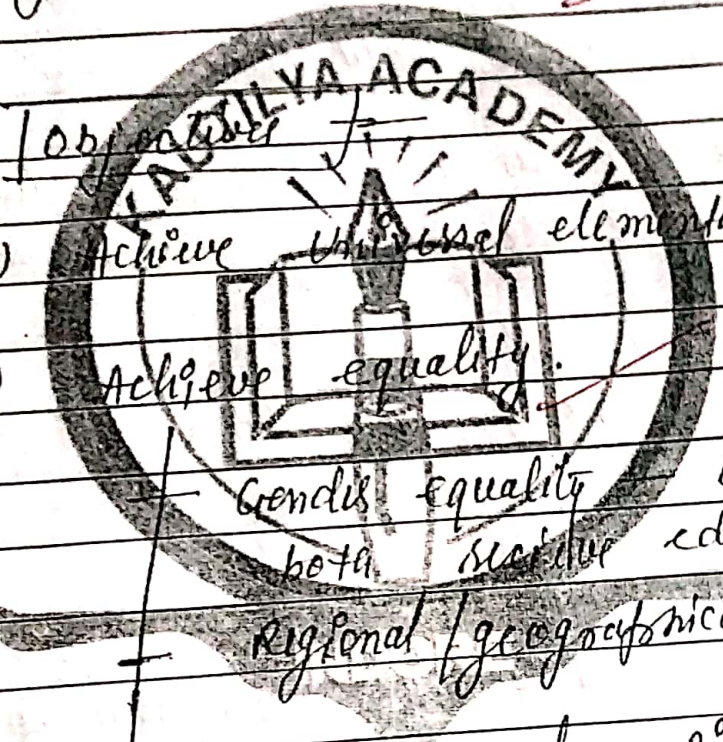 KAUTILYA ACADEMY
Objectives
Achieve universal element
Achieve equality.
Gender equality
both recieve ed
Regional / geographic